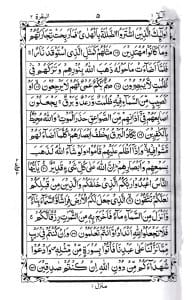 البقرة ٢ ٥ الٓمّٓ ١
اُولٰٓئِكَ الَّذِيْنَ اشْتَرَوُا الضَّلٰلَةَ بِالْهُدٰى فَمَا رَبِحَتْ تِّجَارَتُهُمْ
وَمَا كَانُوْا مُهْتَدِيْنَ ۝ مَثَلُهُمْ كَمَثَلِ الَّذِى اسْتَوْقَدَ نَارًا
فَلَمَّآ اَضَآءَتْ مَا حَوْلَهٗ ذَهَبَ اللّٰهُ بِنُوْرِهِمْ وَتَرَكَهُمْ فِيْ
ظُلُمٰتٍ لَّا يُبْصِرُوْنَ ۝ صُمٌّۢ بُكْمٌ عُمْيٌ فَهُمْ لَا يَرْجِعُوْنَ ۝ اَوْ كَصَيِّبٍ
مِّنَ السَّمَآءِ فِيْهِ ظُلُمٰتٌ وَّرَعْدٌ وَّبَرْقٌ يَجْعَلُوْنَ
اَصَابِعَهُمْ فِيْٓ اٰذَانِهِمْ مِّنَ الصَّوَاعِقِ حَذَرَ الْمَوْتِ وَاللّٰهُ
مُحِيْطٌۢ بِالْكٰفِرِيْنَ ۝ يَكَادُ الْبَرْقُ يَخْطَفُ اَبْصَارَهُمْ كُلَّمَآ اَضَآءَ
لَهُمْ مَّشَوْا فِيْهِ وَاِذَآ اَظْلَمَ عَلَيْهِمْ قَامُوْا وَلَوْ شَآءَ اللّٰهُ لَذَهَبَ
بِسَمْعِهِمْ وَاَبْصَارِهِمْ اِنَّ اللّٰهَ عَلٰى كُلِّ شَيْءٍ قَدِيْرٌ ۝ يٰٓاَيُّهَا
النَّاسُ اعْبُدُوْا رَبَّكُمُ الَّذِيْ خَلَقَكُمْ وَالَّذِيْنَ مِنْ قَبْلِكُمْ
لَعَلَّكُمْ تَتَّقُوْنَ ۝ الَّذِيْ جَعَلَ لَكُمُ الْاَرْضَ فِرَاشًا وَّالسَّمَآءَ
بِنَآءً وَّاَنْزَلَ مِنَ السَّمَآءِ مَآءً فَاَخْرَجَ بِهٖ مِنَ الثَّمَرٰتِ رِزْقًا لَّكُمْ
فَلَا تَجْعَلُوْا لِلّٰهِ اَنْدَادًا وَّاَنْتُمْ تَعْلَمُوْنَ ۝ وَاِنْ كُنْتُمْ فِيْ رَيْبٍ
مِّمَّا نَزَّلْنَا عَلٰى عَبْدِنَا فَاْتُوْا بِسُوْرَةٍ مِّنْ مِّثْلِهٖ وَادْعُوْا
شُهَدَآءَكُمْ مِّنْ دُوْنِ اللّٰهِ اِنْ كُنْتُمْ صٰدِقِيْنَ ۝
منزل ١